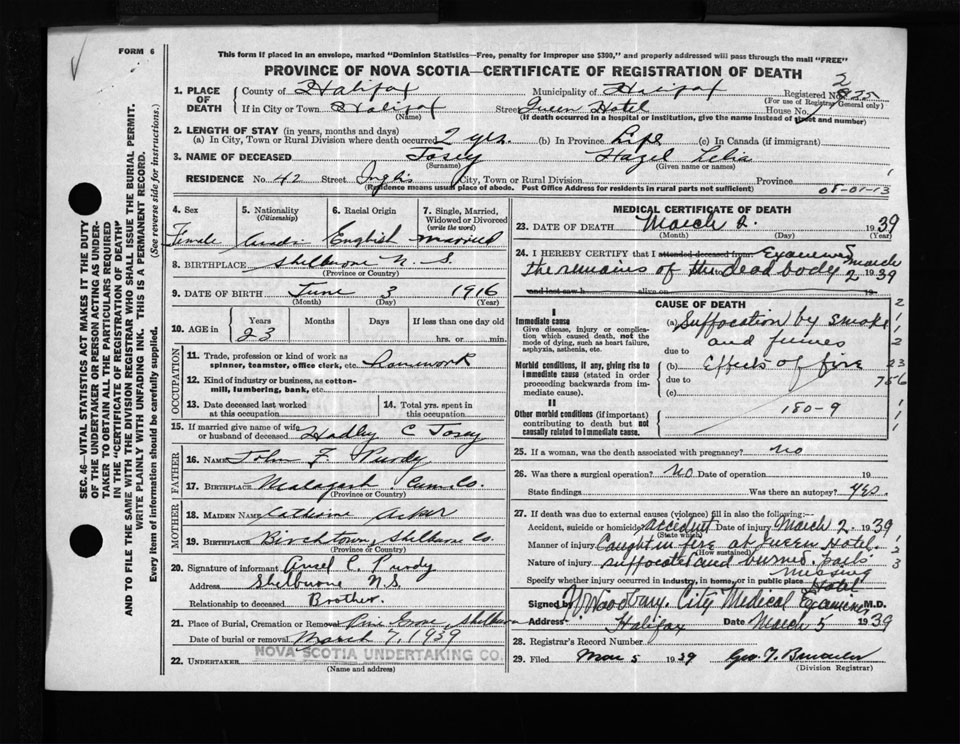 FORM 6
This form if placed in an envelope, marked "Dominion Statistics—Free, penalty for improper use $300," and properly addressed will pass through the mail "FREE"
PROVINCE OF NOVA SCOTIA—CERTIFICATE OF REGISTRATION OF DEATH
1. PLACE OF DEATH
County of Halifax Municipality of Halifax Registered No.
(For use of Registrar General only)
If in City or Town Halifax Street Queen Hotel House No.
(Name) (If death occurred in hospital or institution, give the name instead of street and number)
2. LENGTH OF STAY (in years, months and days)
(a) In City, Town or Rural Division where death occurred 2 yrs. (b) In Province Life (c) In Canada (if immigrant)
3. NAME OF DECEASED Tosey Hazel Lelia
(Surname) (Given name or names)
RESIDENCE No. 42 Street Inglis City, Town or Rural Division Province
(Residence means usual place of abode. Post Office Address for residents in rural parts not sufficient) 08-01-13
SEC. 46—VITAL STATISTICS ACT MAKES IT THE DUTY
OF THE UNDERTAKER OR PERSON ACTING AS UNDER-
TAKER TO OBTAIN ALL THE PARTICULARS REQUIRED
IN THE "CERTIFICATE OF REGISTRATION OF DEATH"
AND TO FILE THE SAME WITH THE DIVISION REGISTRAR WHO SHALL ISSUE THE BURIAL PERMIT.
WRITE PLAINLY WITH UNFADING INK. THIS IS A PERMANENT RECORD.
Every item of information should be carefully supplied. (See reverse side for instructions.)
4. Sex Female
5. Nationality (Citizenship) Canadn
6. Racial Origin English
7. Single, Married, Widowed or Divorced (write the word) Married
8. BIRTHPLACE Shelburne N. S.
(Province or Country)
9. DATE OF BIRTH June 3 1916
(Month) (Day) (Year)
10. AGE in Years Months Days If less than one day old
23 hrs. or min.
OCCUPATION
11. Trade, profession or kind of work as spinner, teamster, office clerk, etc. Housework
12. Kind of industry or business, as cotton-mill, lumbering, bank, etc.
13. Date deceased last worked at this occupation
14. Total yrs. spent in this occupation
15. If married give name of wife or husband of deceased Hadley C Tosey
FATHER
16. NAME John F. Purdy
17. Birthplace Malagash Cum. Co.
(Province or Country)
MOTHER
18. MAIDEN NAME Catherine Acker
19. BIRTHPLACE Birchtown, Shelburne Co.
(Province or Country)
20. Signature of informant C. Purdy
Address Shelburne N.S.
Relationship to deceased Brother
21. Place of Burial, Cremation or Removal Pine Grove, Shelburne
Date of burial or removal March 7, 1939
22. UNDERTAKER NOVA SCOTIA UNDERTAKING CO.
(Name and address)
MEDICAL CERTIFICATE OF DEATH
23. DATE OF DEATH March 2. 1939
(Month) (Day) (Year)
24. I HEREBY CERTIFY that I attended deceased from Examined
the remains of the dead body March 2 1939
and last saw h alive on 19
CAUSE OF DEATH
I
Immediate cause
Give disease, injury or complication which caused death, not the mode of dying, such as heart failure, asphyxia, asthenia, etc.
(a) Suffocation by smoke
and fumes
due to
Morbid conditions, if any, giving rise to immediate cause (stated in order proceeding backwards from immediate cause).
(b) Effects of fire
due to
(c)
II
Other morbid conditions (if important) contributing to death but not causally related to immediate cause.
180-9
25. If a woman, was the death associated with pregnancy? no
26. Was there a surgical operation? NO Date of operation 19
State findings Was there an autopsy? yes.
27. If death was due to external causes (violence) fill in also the following:—
Accident, suicide or homicide? accident Date of injury March 2. 1939
(State which)
Manner of injury Caught in fire at Queen Hotel.
(How sustained)
Nature of injury suffocated and burned. part
missing
Specify whether injury occurred in industry, in home, or in public place Hotel
Signed by W. Woodbury. City Medical Examiner M.D.
Address Halifax Date March 5 1939
28. Registrar's Record Number
29. Filed Mar 5 1939 Geo. T.
(Division Registrar)